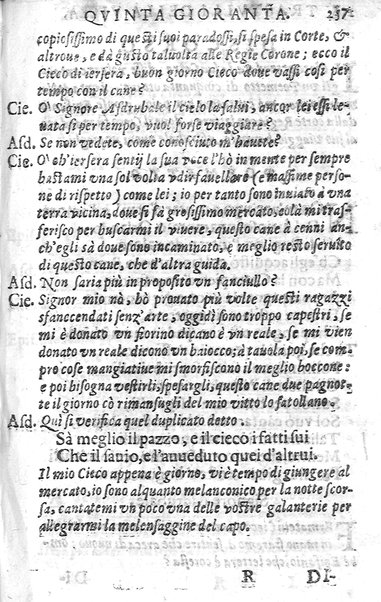 QVINTA GIORANTA. 257
copiosissimo di questi suoi paradossi, si spesa in Corte, &
altroue, e dà gusto taluolta alle Regie Corone; ecco il
Cieco di iersera, buon giorno Cieco doue vassi così per
tempo con il cane?
Cie. O' Signore Asdrubale il cielo la salui, ancor lei essi le-
uata sì per tempo, vuol forse viaggiare?
Asd. Se non vedete, come conosciuto m'hauete?
Cie. O' ch'iersera sentij la sua voce l'hò in mente per sempre
bastami vna sol volta vdir fauellare (e massime perso-
ne di rispetto) come lei; io per tanto sono inuiato à vna
terra vicina, doue si fà grosissimo mercato, colà mi tras-
ferisco per buscarmi il viuere, questo cane à cenni an-
ch'egli sà doue sono incaminato, e meglio resto seruito
di questo cane, che d'altra guida.
Asd. Non saria più in proposito vn fanciullo?
Cie. Signor mio nò, hò prouato più volte questi ragazzi
sfanccendati senz'arte, oggidì sono troppo capestri, se
mi è donato vn fiorino dicano è vn reale, se mi vien
donato vn reale dicono vn baiocco; à tauola poi, se com-
pro cose mangiatiue mi smorfiscono il meglio boccone:
e poi bisogna vestirli, spesargli, questo cane due pagnot-
te il giorno cò rimansugli del mio vitto lo satollano.
Asd. Qui si verifica quel duplicato detto.
Sà meglio il pazzo, e il cieco i fatti sui
Che il sauio, e l'anueduto quei d'altrui.
Il mio Cieco appena è giorno, vi è tempo di giungere al
mercato, io sono alquanto melanconico per la notte scor-
sa, cantatemi vn poco vna delle vostre galanterie per
allegrarmi la melensaggine del capo.
R DI-